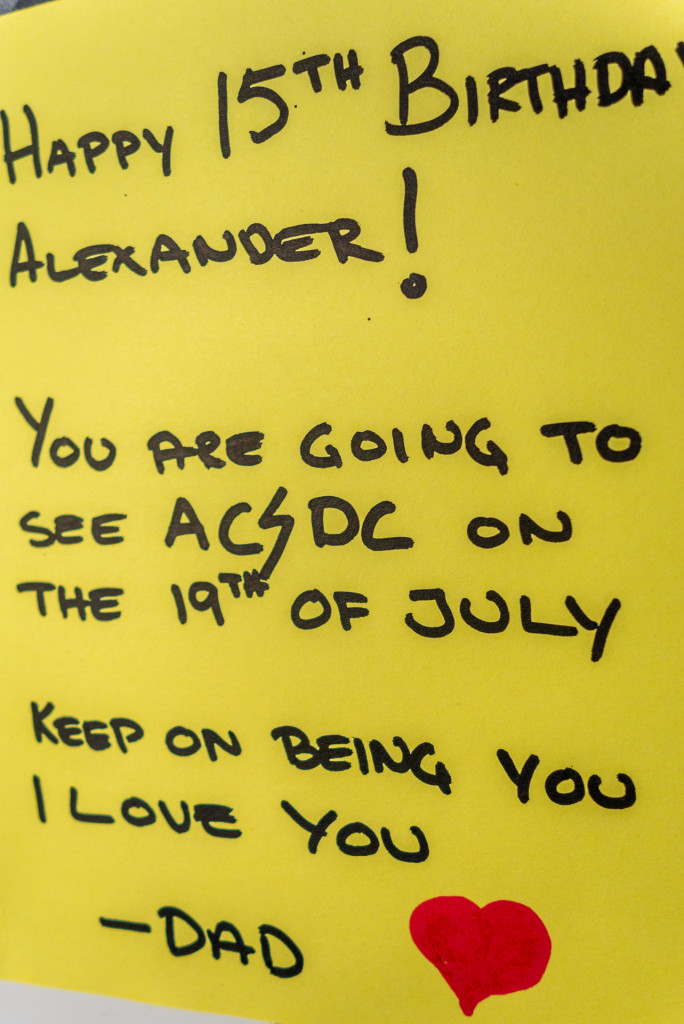 HAPPY 15TH BIRTHDAY
ALEXANDER!
YOU ARE GOING TO
SEE AC⚡DC ON
THE 19TH OF JULY
KEEP ON BEING YOU
I LOVE YOU
-DAD